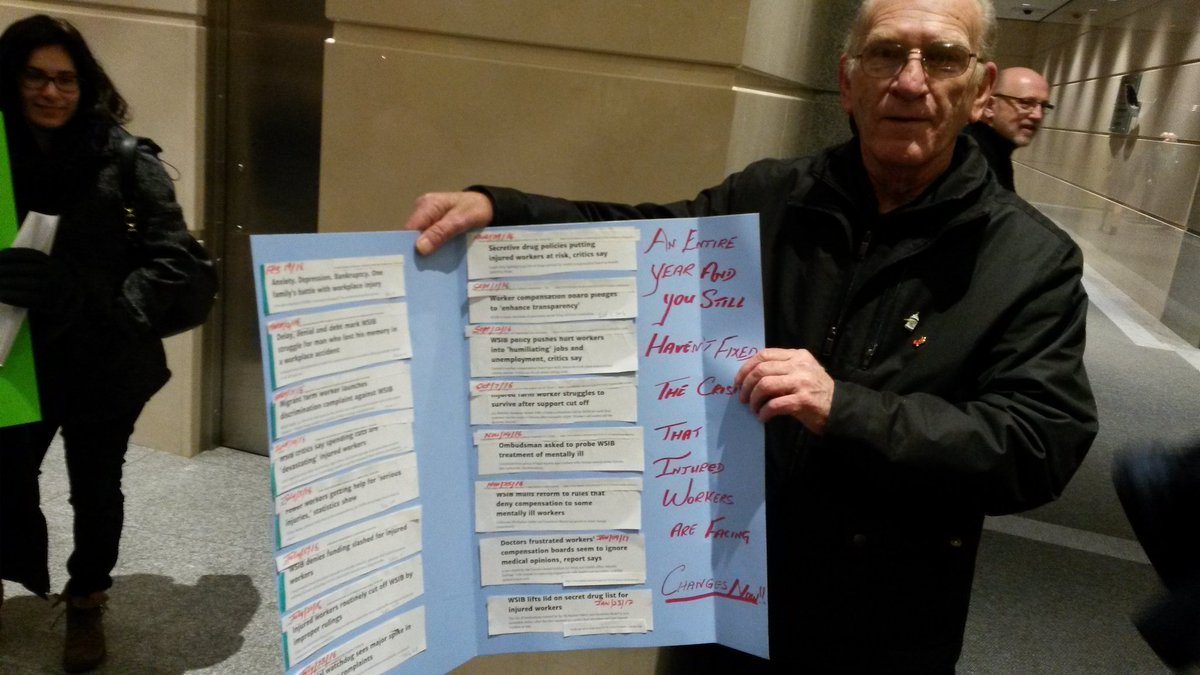 Feb 19/16
Anxiety, Depression, Bankruptcy. One
family's battle with workplace injury
Delay, denial and debt mark WSIB
struggle for man who lost his memory in
a workplace accident
Migrant farm worker launches
discrimination complaint against WSIB
WSIB critics say spending cuts are
'devastating' injured workers
Fewer workers getting help for 'serious
injuries,' statistics show
WSIB denies funding slashed for injured
workers
Injured workers routinely cut off WSIB by
improper rulings
watchdog sees major spike in
complaints
Secretive drug policies putting
injured workers at risk, critics say
Worker compensation board pledges
to 'enhance transparency'
Sept/12/16
WSIB policy pushes hurt workers
into 'humiliating' jobs and
unemployment, critics say
Oct/7/16
Injured farm worker struggles to
survive after support cut off
Nov/04/16
Ombudsman asked to probe WSIB
treatment of mentally ill
Nov/25/16
WSIB mulls reform to rules that
deny compensation to some
mentally ill workers
Doctors frustrated workers' Jan/09/17
compensation boards seem to ignore
medical opinions, report says
WSIB lifts lid on secret drug list for
injured workers Jan/23/17
An Entire
Year And
you Still
Haven't Fixed
The
That
Injured
Workers
are Facing
Changes Now!!